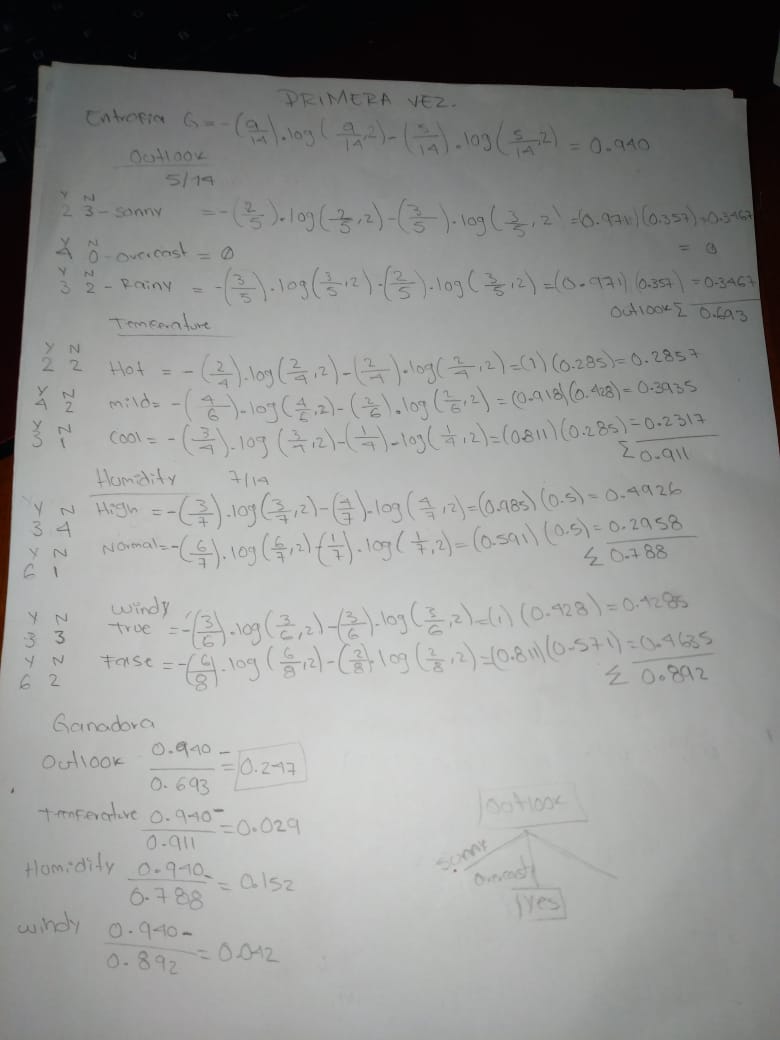 PRIMERA VEZ.
Entropia G = -(9/14).log(9/14,2)-(5/14).log(5/14,2) = 0.940
Outlook
5/14
Y N
2 3-sonny = -(2/5).log(2/5,2)-(3/5).log(3/5,2) =(0.971)(0.357)=0.3467
Y N
4 0-overcast = 0 = 0
Y N
3 2-Rainy = -(3/5).log(3/5,2)-(2/5).log(3/5,2)=(0.971)(0.357)=0.3467
Outlook Σ 0.693
Temperature
Y N
2 2 Hot = -(2/4).log(2/4,2)-(2/4).log(2/4,2)=(1)(0.285)=0.2857
Y N
4 2 mild= -(4/6).log(4/6,2)-(2/6).log(2/6,2) = (0.918)(0.428)= 0.3935
Y N
3 1 cool = -(3/4).log(3/4,2)-(1/4)-log(1/4,2)=(0.811)(0.285)=0.2317
Σ 0.911
Humidity 7/14
Y N
3 4 High = -(3/7).log(3/7,2)-(4/7).log(4/7,2)=(0.985)(0.5)= 0.4926
Y N
6 1 Normal=-(6/7).log(6/7,2)-(1/7).log(1/7,2)=(0.591)(0.5)=0.2958
Σ 0.788
windy
Y N
3 3 true =-(3/6).log(3/6,2)-(3/6).log(3/6,2)=(1)(0.428)=0.4285
Y N
6 2 False =-(6/8).log(6/8,2)-(2/8).log(2/8,2)=(0.811)(0.571)=0.4635
Σ 0.892
Ganadora
Outlook 0.940 - 0.693 = 0.247
Temperature 0.940 - 0.911 = 0.029
Homidity 0.940 - 0.788 = 0.152
windy 0.940 - 0.892 = 0.042
outlook
sonny
overcast
yes